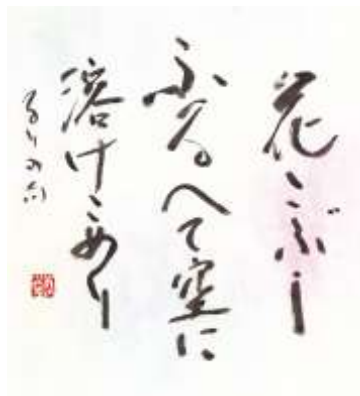 花こぶし
ふるへて空に
溶けこめり